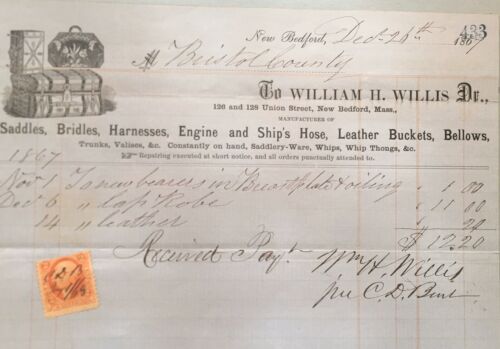 433
New Bedford, Dec. 26th 1867
M Bristol County
To WILLIAM H. WILLIS Dr.,
126 and 128 Union Street, New Bedford, Mass.,
MANUFACTURER OF
Saddles, Bridles, Harnesses, Engine and Ship's Hose, Leather Buckets, Bellows,
Trunks, Valises, &c. Constantly on hand, Saddlery-Ware, Whips, Whip Thongs, &c.
Repairing executed at short notice, and all orders punctually attended to.
1867
Nov 1 To new bearers in Breastplate & oiling 1 00
Dec 6 " Lap Robe 11 00
14 " leather 20
$ 12.20
Received Payt.
Wm H. Willis
per C. D.